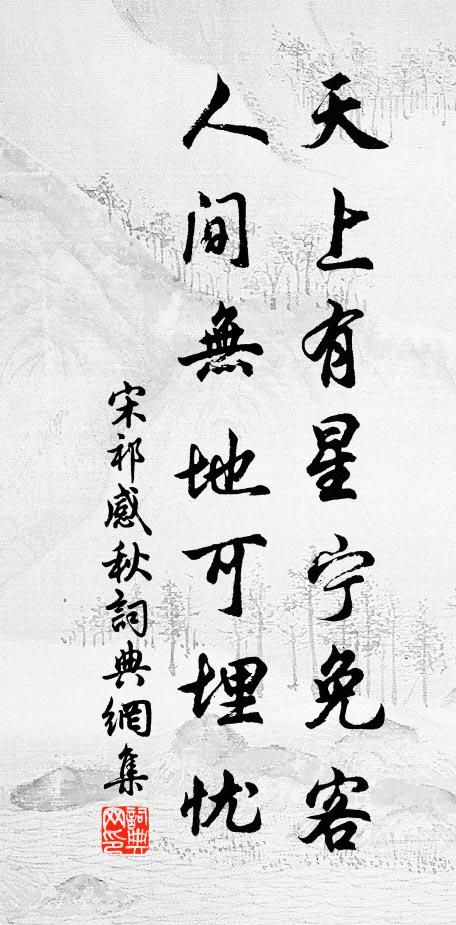 天上有星宁免客
人间無地可埋忧
宋祁感秋詞典網集
詞典网印